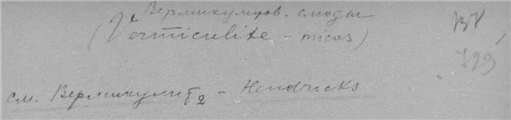 Вермикулитов. слюды
(Vermiculite - micas)
ВК
729
см. Вермикулит₂ - Hendricks